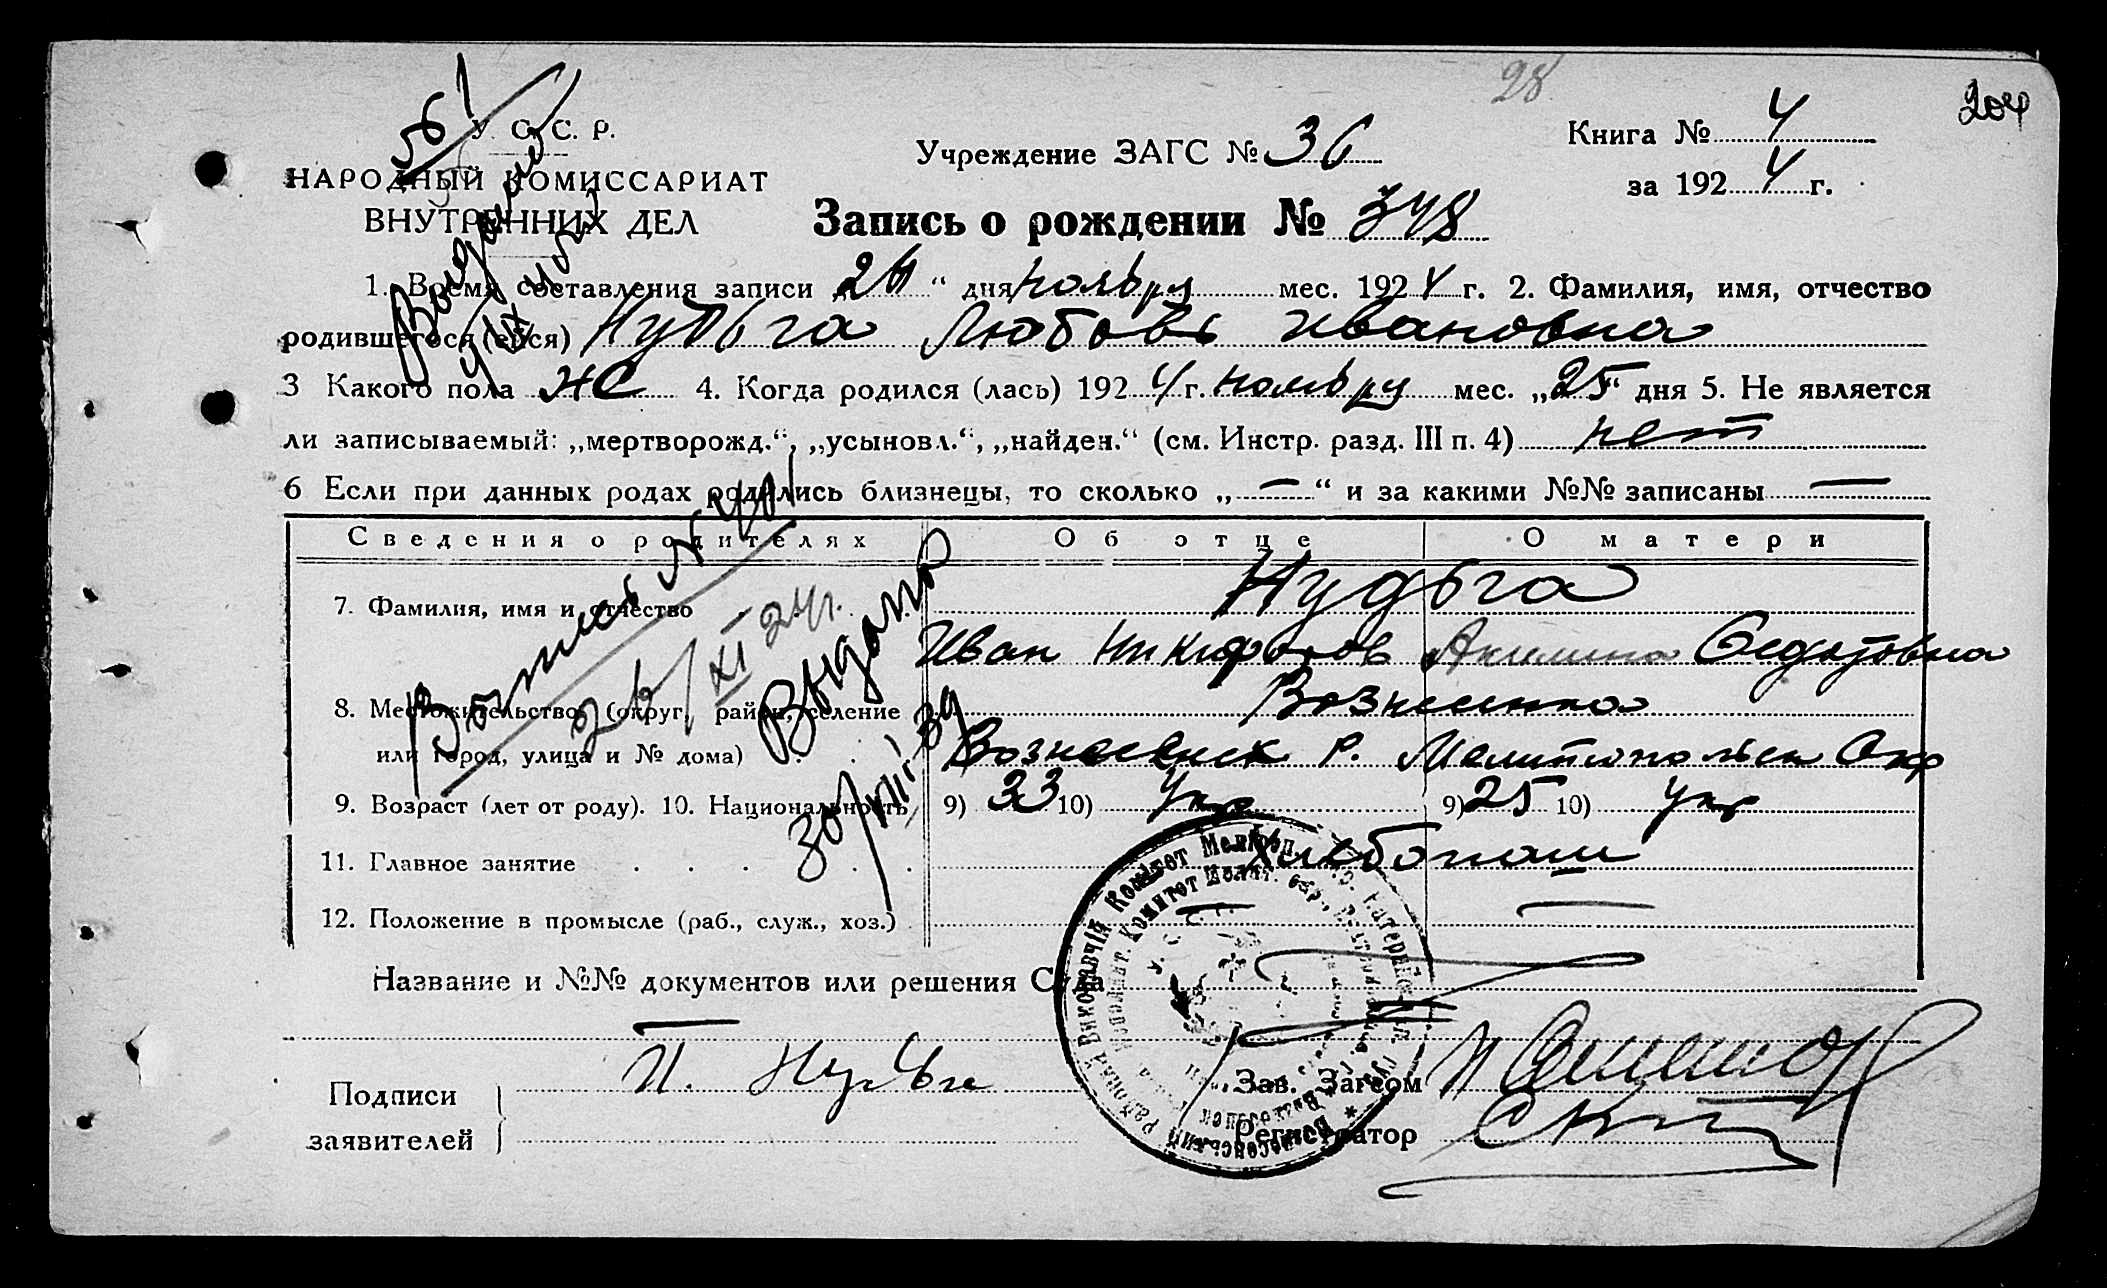 28
204
У. С. С. Р.
НАРОДНЫЙ КОМИССАРИАТ
ВНУТРЕННИХ ДЕЛ
Учреждение ЗАГС № 36
Книга № 4
за 1924 г.
Запись о рождении № 348
1. Время составления записи 26 “ дня ноября мес. 1924 г. 2. Фамилия, имя, отчество
родившегося (ейся) Нудьга Любовь Ивановна
3 Какого пола ж 4. Когда родился (лась) 1924 г. ноября мес. „25“ дня 5. Не является
ли записываемый: „мертворожд.“, „усыновл.“, „найден.“ (см. Инстр. разд. III п. 4) нет
6 Если при данных родах родились близнецы, то сколько „—“ и за какими №№ записаны —
Сведения о родителях Об отце О матери
7. Фамилия, имя и отчество Нудьга
Иван Никифоров Акилина Федотовна
8. Местожительство (округ, район, селение Вознесенка
или город, улица и № дома) Вознесенск Р. Мелитопольск Окр
9. Возраст (лет от роду). 10. Национальность 9) 33 10) Укр 9) 25 10) Укр
11. Главное занятие Хлебопаш
12. Положение в промысле (раб., служ., хоз.) — —
Название и №№ документов или решения Суда
—
Подписи
заявителей
И. Нудьга
Зав. Загсом
Регистратор
Выдано
26/XI 24 г.
Выдано
30/VIII 39